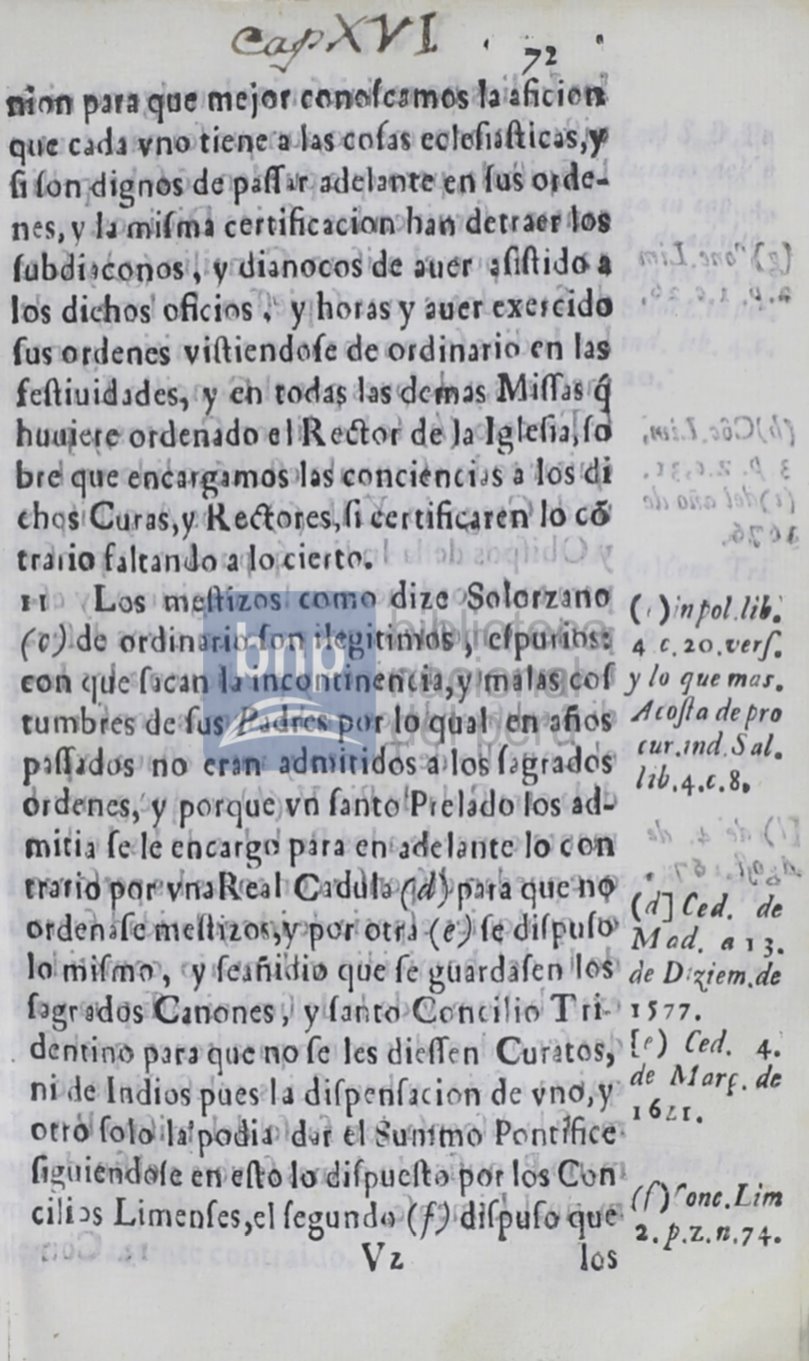 Cap XVI
72
nion para que mejor conoſcamos la aficion
que cada vno tiene a las coſas ecleſiaſticas,y
ſi ſon dignos de paſſar adelante en ſus orde-
nes, y la miſma certificacion han detraer los
ſubdiaconos, y dianocos de auer aſiſtido a
los dichos oficios, y horas y auer exercido
ſus ordenes viſtiendoſe de ordinario en las
feſtiuidades, y en todas las demas Miſſas q̃
huuiere ordenado el Rector de la Igleſia,ſo
bre que encargamos las conciencias a los di
chos Curas,y Rectores,ſi certificaren lo cõ
trario faltando a lo cierto.
11 Los meſtizos como dize Solorzano
(c) de ordinario ſon ilegitimos, eſpurios:
con que ſacan la incontinencia,y malas coſ
tumbres de ſus Padres por lo qual en años
paſſados no eran admitidos a los ſagrados
ordenes, y porque vn ſanto Prelado los ad-
mitia ſe le encargo para en adelante lo con
trario por vna Real Cadula (d) para que no
ordenaſe meſtizos,y por otra (e) ſe diſpuſo
lo miſmo, y ſeañidio que ſe guardaſen los
ſagrados Canones, y ſanto Concilio Tri-
dentino para que no ſe les dieſſen Curatos,
ni de Indios pues la diſpenſacion de vno,y
otro ſolo la podia dar el Summo Pontifice
ſiguiendoſe en eſto lo diſpueſto por los Con
cilios Limenſes,el ſegundo (f) diſpuſo que
V2 los
( ) in pol. lib.
4 c. 20. verſ.
y lo que mas.
Acoſta de pro
cur. ind. Sal.
lib.4.c.8.
(d] Ced. de
Mad. a 13.
de Diziem. de
1577.
[e) Ced. 4.
de Març. de
1621.
(f) Conc. Lim
2. p. 2. n. 74.
bnp biblioteca
nacional
del perú